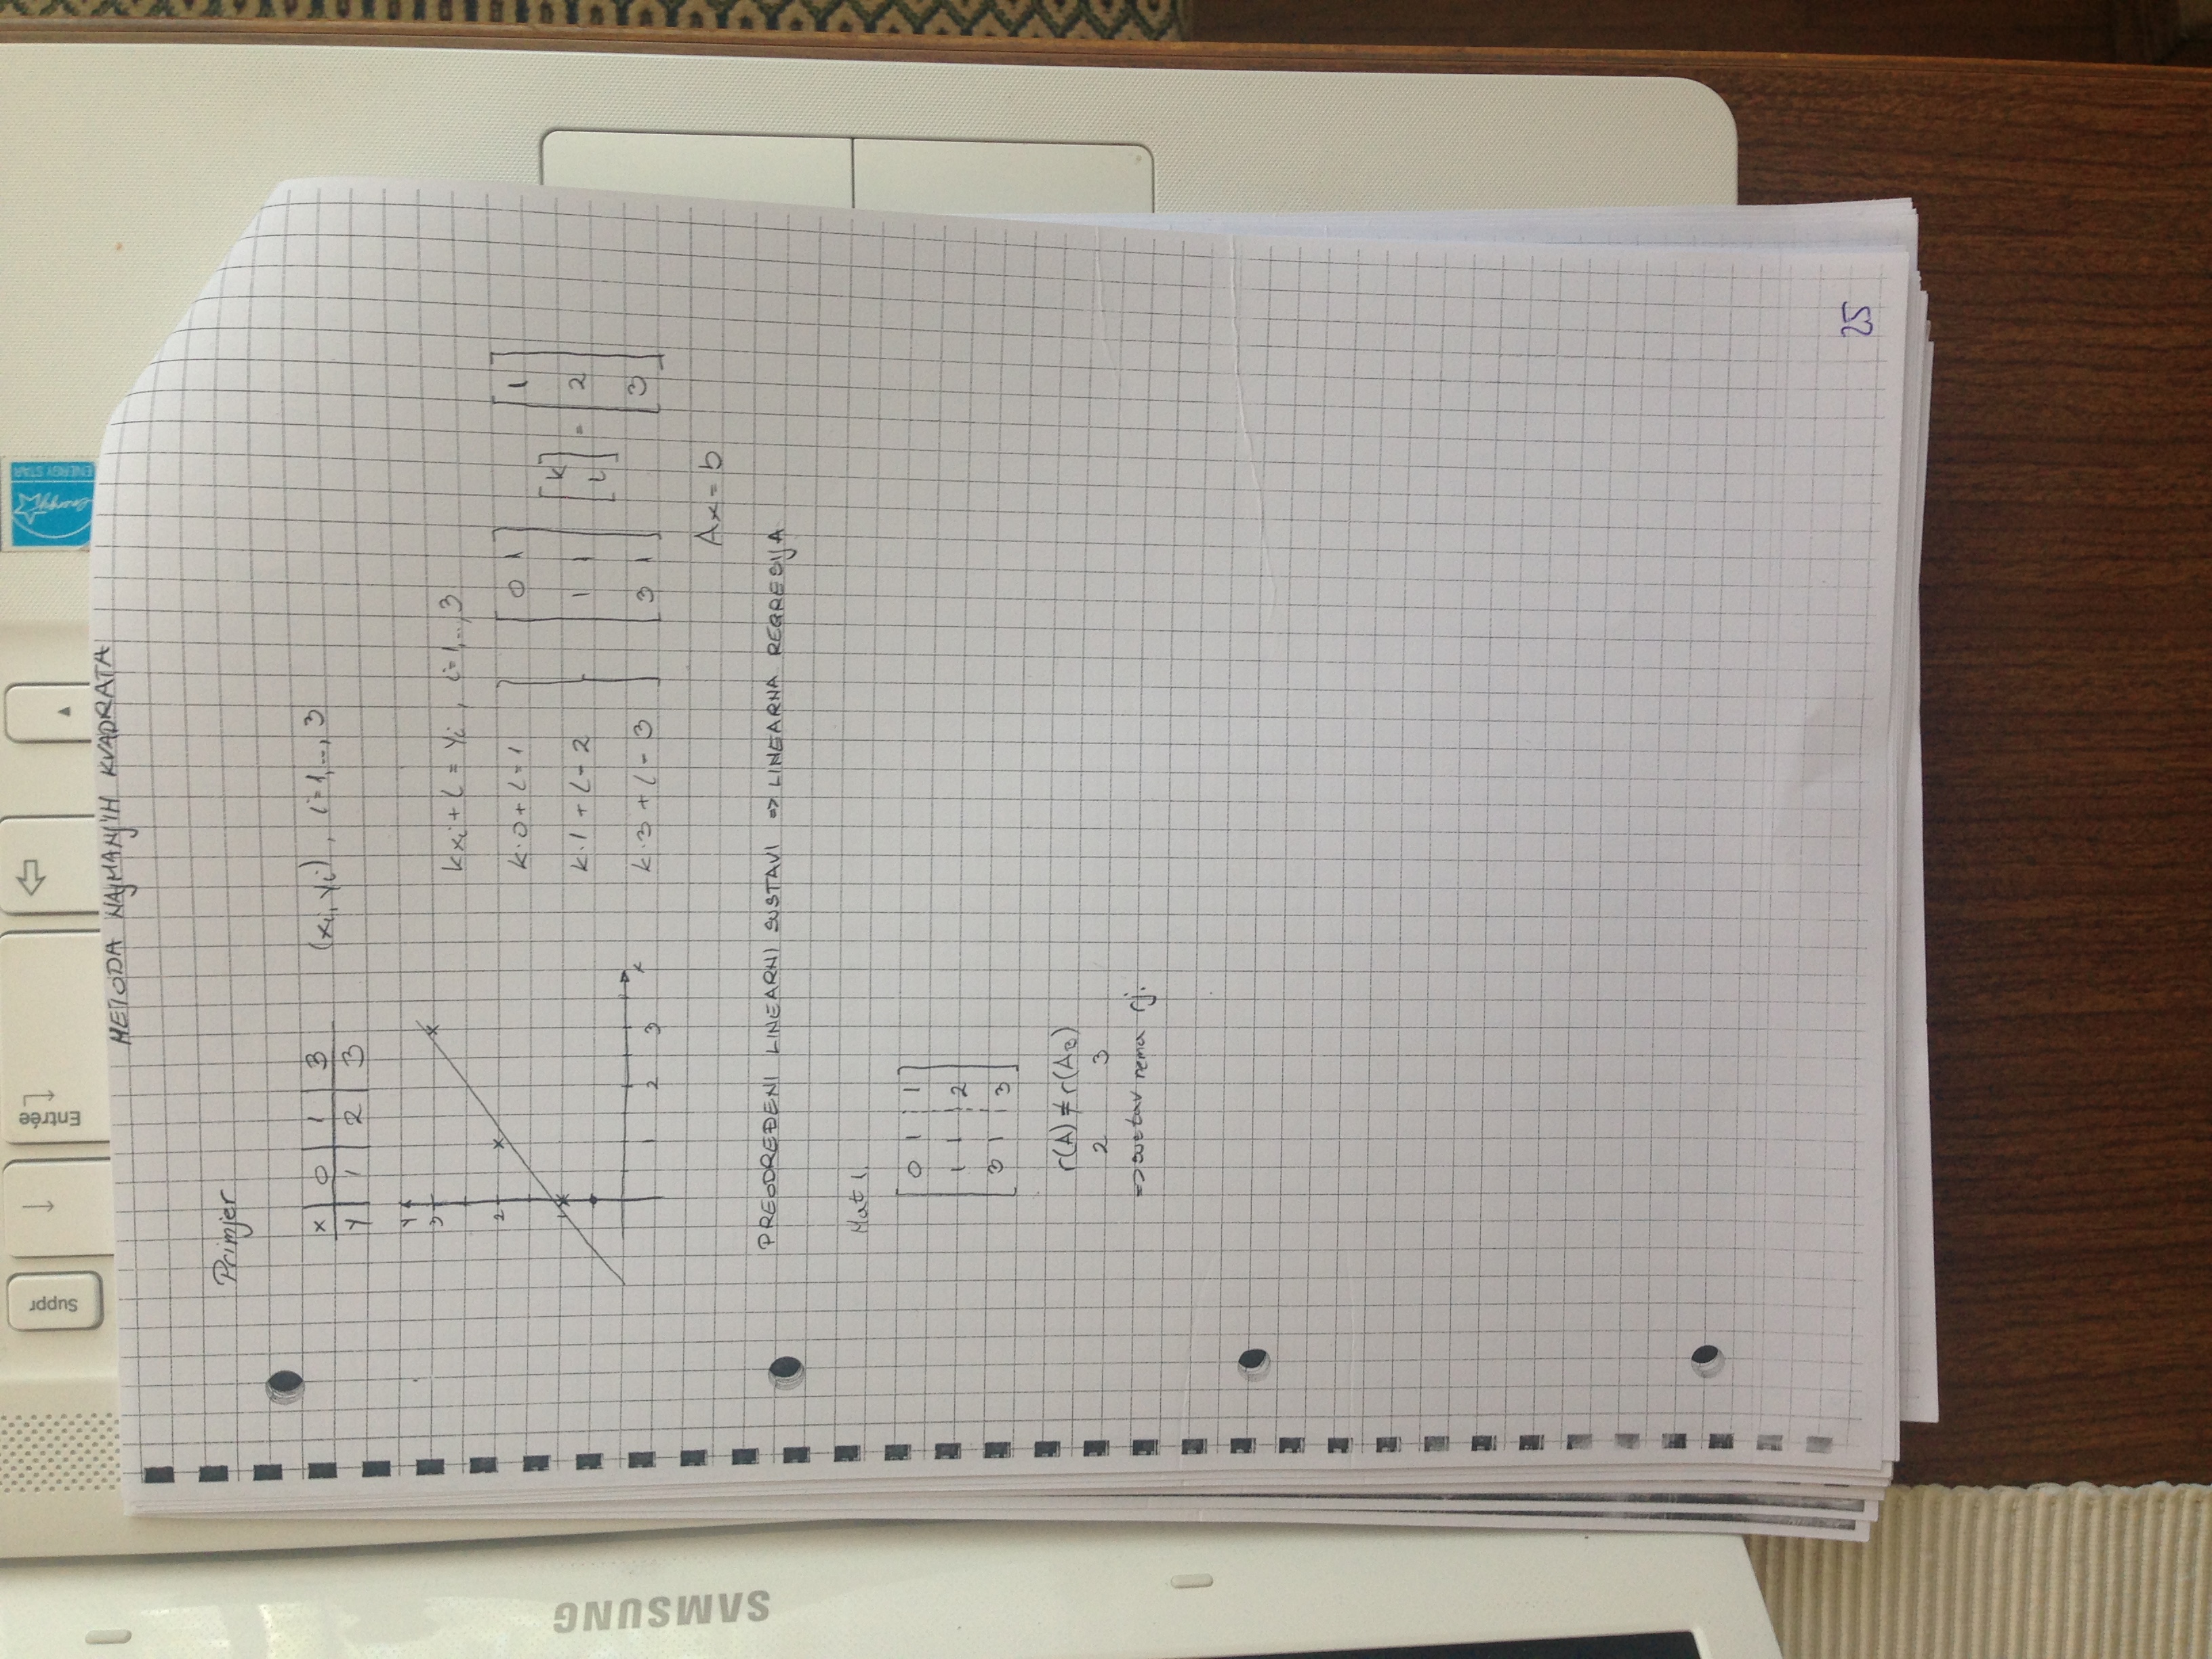 Suppr
←
Entrée
ENERGY STAR
energy
SAMSUNG
METODA NAJMANJIH KVADRATA
Primjer
x | 0 | 1 | 3
y | 1 | 2 | 3
(xi, yi), i=1,..., 3
y
3
2
1
1 2 3 x
kxi + l = yi, i=1,...,3
k·0 + l = 1
k·1 + l = 2
k·3 + l = 3
[0 1; 1 1; 3 1] [k; l] = [1; 2; 3]
Ax = b
PREODREĐENI LINEARNI SUSTAVI => LINEARNA REGRESIJA
Mat 1.
0 1 | 1
1 1 | 2
3 1 | 3
r(A) ≠ r(AB)
2 3
=> sustav nema rj.
25